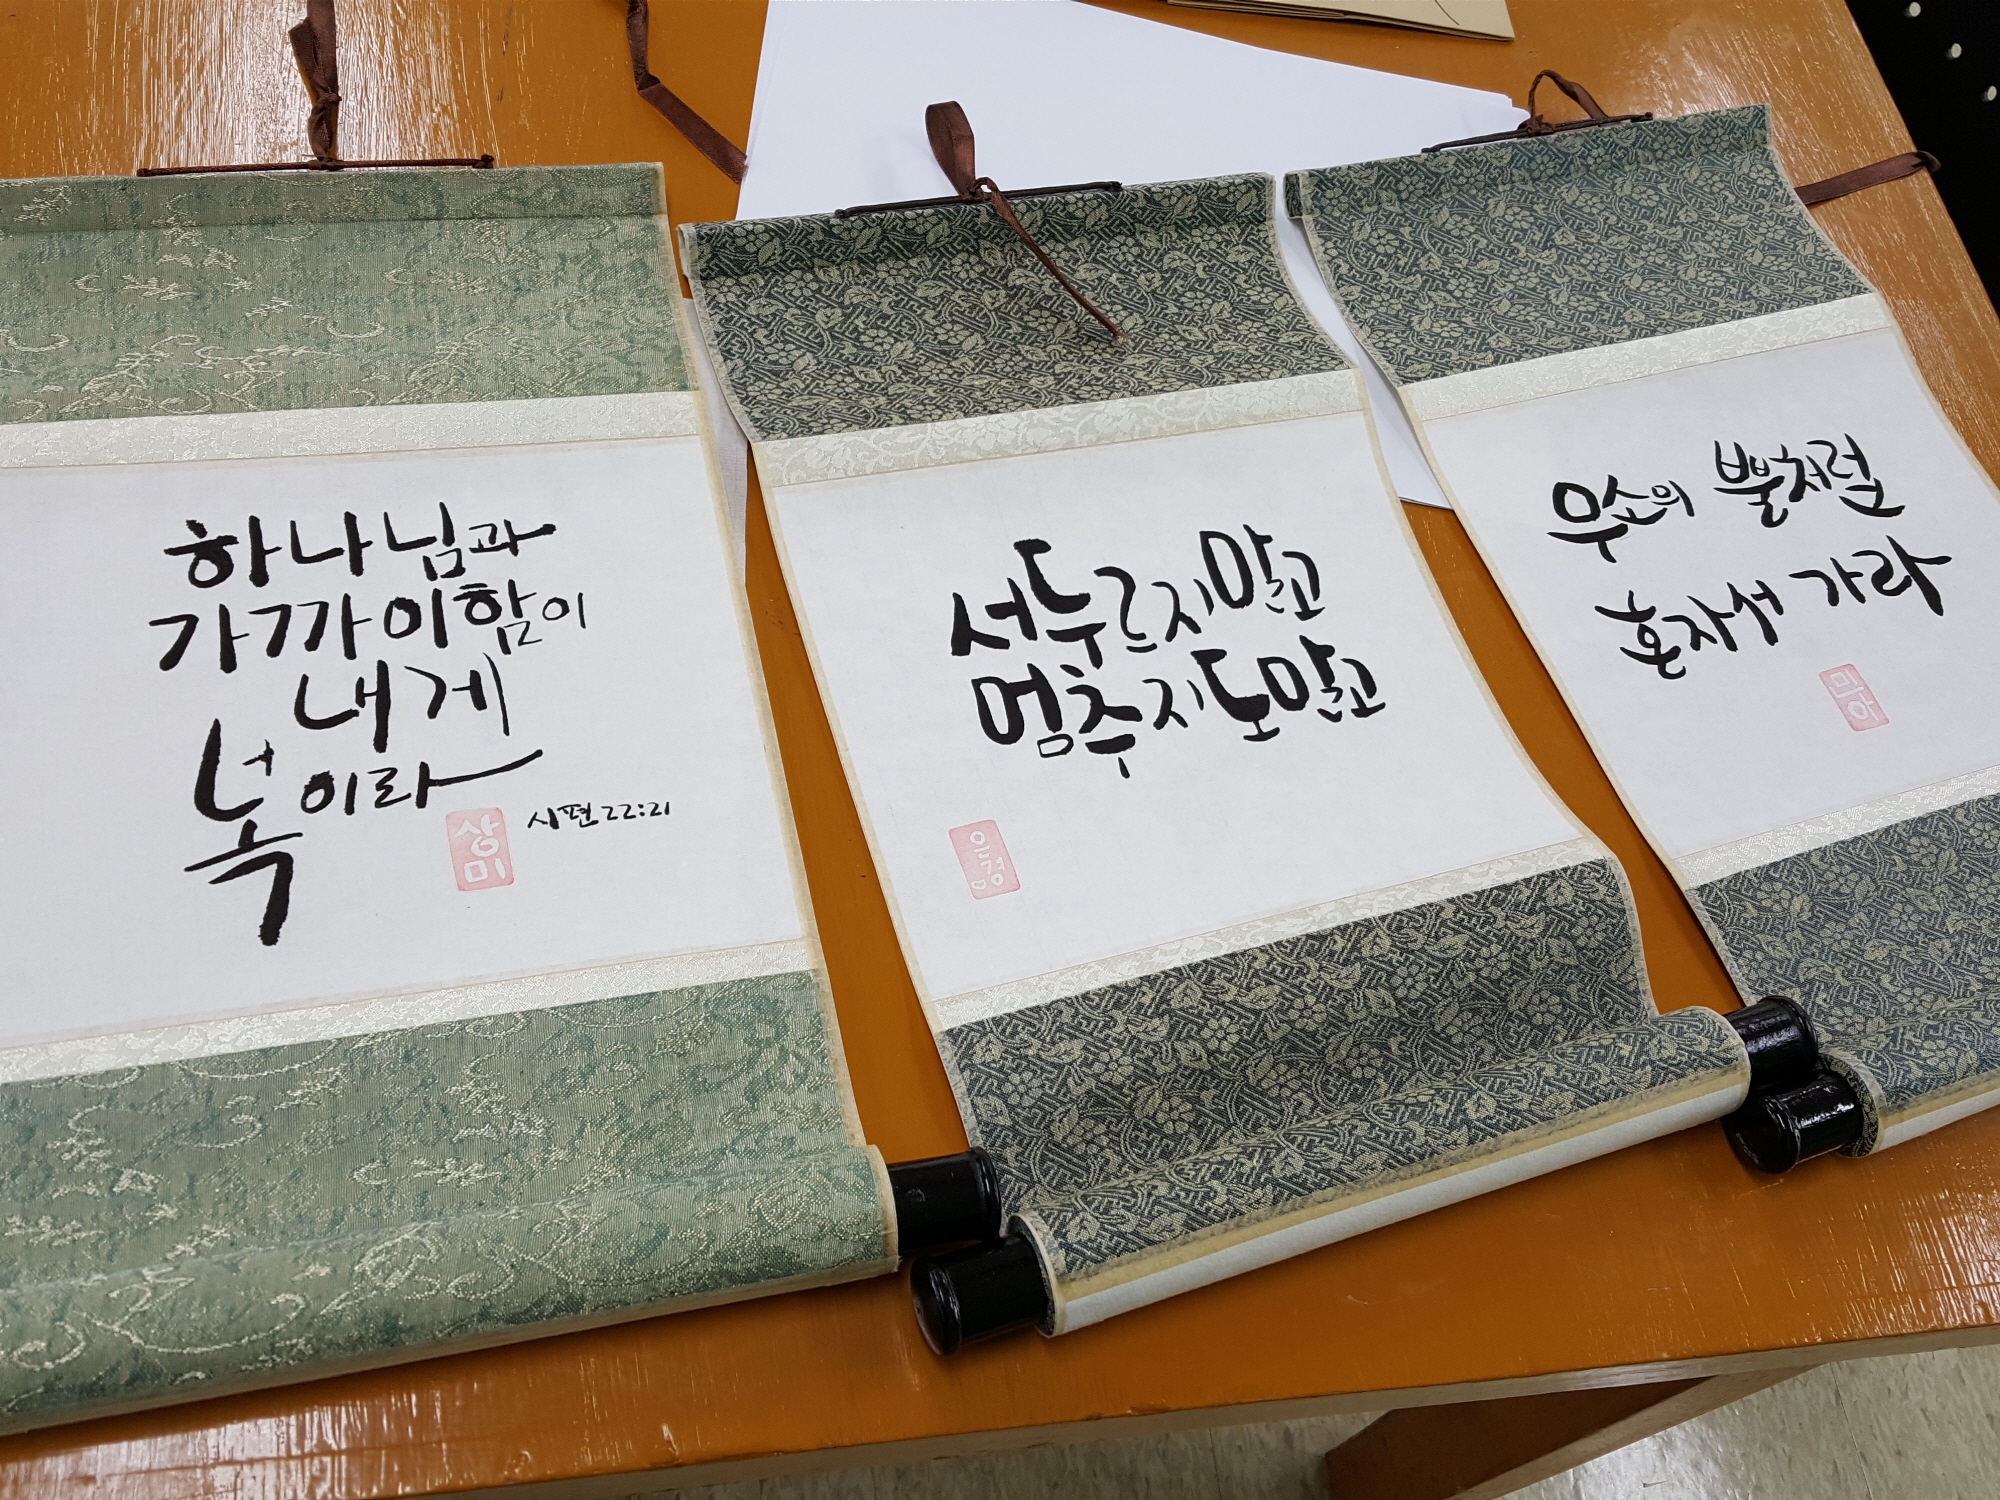 하나님과
가까이함이
내게
복이라
상미
시편 22:21
서두르지말고
멈추지도말고
은경
우소의 뿔처럼
혼자서 가라
미아